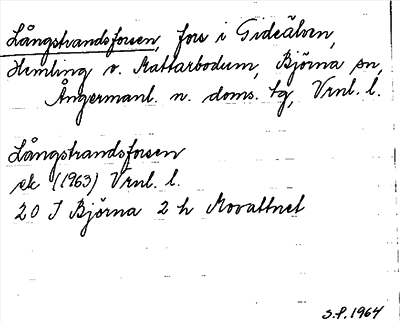 Långstrandsforsen, fors i Gideälven,
Himling v. Kattarbodum, Björna sn,
Ångermanl. n. doms. tg, Vrnl. l.
Långstrandsforsen
ek (1963) Vrnl. l.
20 I Björna 2 h Movattnet
S.P. 1964